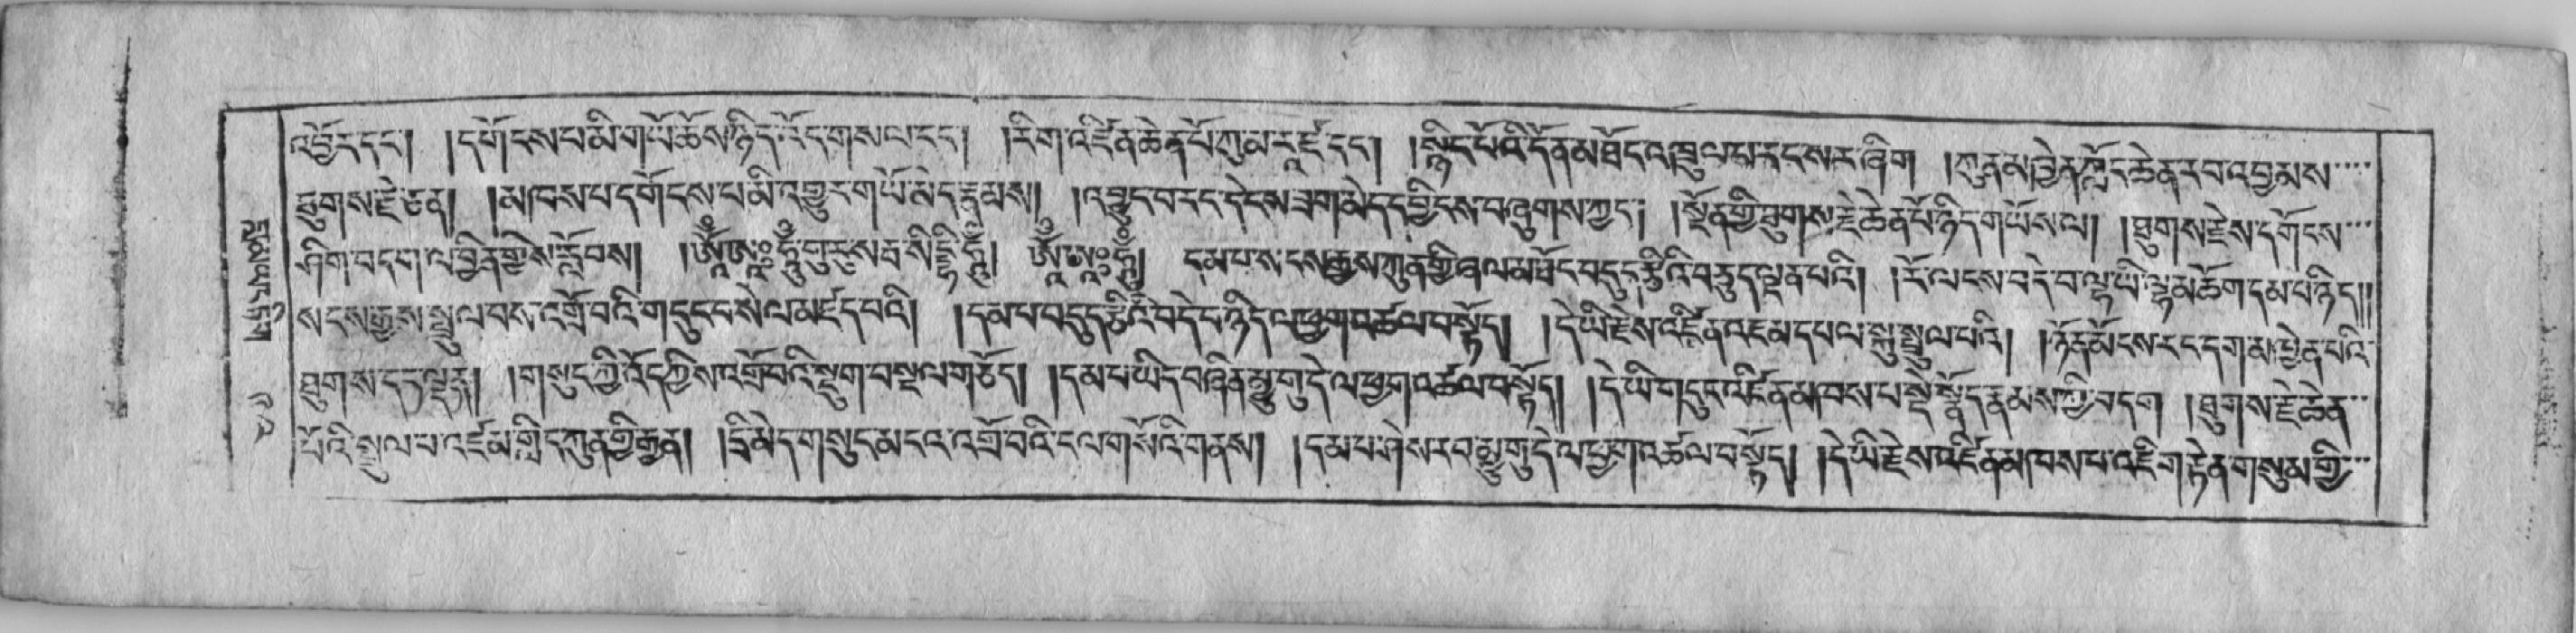 འབྱོར་དང་། །དགོངས་པ་མི་གཡོ་ཆོས་ཉིད་འོད་གསལ་དང་། །རིག་འཛིན་ཆེན་པོ་ཀུ་མ་ར་ཛ་དང་། །སྙིང་པོའི་དོན་མཐོང་འཁྲུལ་པ་དྭངས་ར་ཞིག །ཀུན་མཁྱེན་ཀློང་ཆེན་རབ་འབྱམས་
ཐུགས་རྗེ་ཅན། །མཁས་པ་དགོངས་པ་མི་འགྱུར་གཡོ་མེད་རྣམས། །འབྱུང་བ་དང་དེངས་ཟག་མེད་དབྱིངས་བཞུགས་ཀྱང་། །སྔོན་གྱི་ཐུགས་རྗེ་ཆེན་པོ་ཉིད་གཡོས་ལ། །ཐུགས་རྗེས་དགོངས་
ཤིག་བདག་ལ་བྱིན་གྱིས་རློབས། །ཨོཾ་ཨཱཿཧཱུྃ་གུ་རུ་སརྦ་སིདྡྷི་ཧཱུྃ། ཨོཾ་ཨཱཿཧཱུྃ། དམ་པ་སངས་རྒྱས་ཀུན་གྱི་ཞལ་མཐོང་བདུད་རྩིའི་བཅུད་ལྡན་པའི། །རོ་ལངས་བདེ་བ་ལྷ་ཡི་ལྷམ་ཆོག་དམ་པ་ཉིད།།
སངས་རྒྱས་སྤྲུལ་པས་འགྲོ་བའི་གདུང་ང་སེལ་མཛད་པའི། །དམ་པ་བདུད་རྩིའི་བདེ་ད་ཉིད་ལ་ཕྱག་འཚལ་བསྟོད། །དེ་ཡི་རྗེས་འཛིན་འཇམ་དཔལ་སྐུ་སྤྲུལ་པའི། །ཉོན་མོངས་རང་དག་མཁྱེན་པའི་
ཐུགས་དང་ལྡན། །གསུང་གི་འོད་ཀྱིས་འགྲོ་བའི་སྡུག་བསྔལ་གཅོད། །དམ་པ་ཡིད་བཞིན་མྱུ་གུ་དེ་ལ་ཕྱག་འཚལ་བསྟོད། །དེ་ཡི་གདུང་འཛིན་མཁས་པ་སྡེ་སྣོད་རྣམས་ཀྱི་བདག །ཐུགས་རྗེ་ཆེན་
པོའི་སྤྲུལ་པ་འཛམ་གླིང་ཀུན་གྱི་རྒྱན། །དྲི་མེད་གསུང་མངའ་འགྲོ་བའི་ངལ་གསོའི་གནས། །དམ་པ་ཤེས་རབ་མྱུ་གུ་དེ་ལ་ཕྱག་འཚལ་བསྟོད། །དེ་ཡི་རྗེས་འཛིན་མཁས་པ་འཇིག་རྟེན་གསུམ་གྱི་